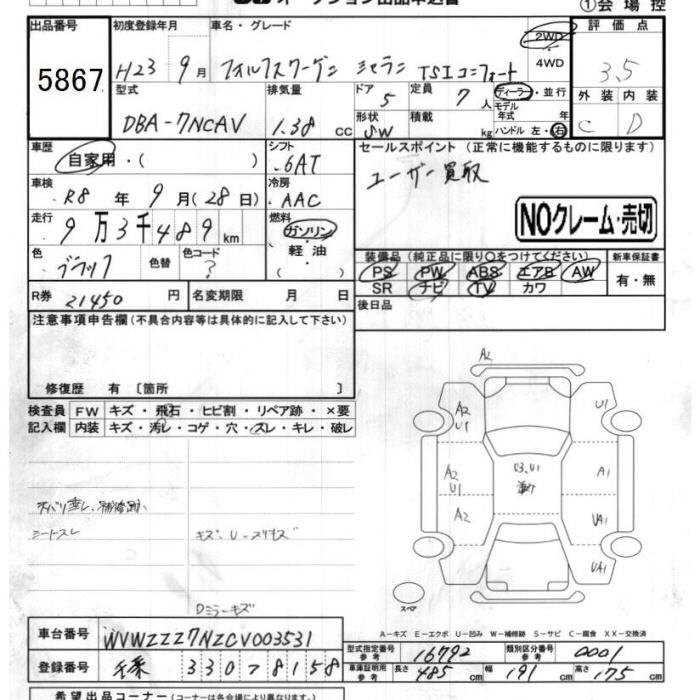 ①会場控
出品番号
5867
初度登録年月
H23 9月
車名・グレード
フォルクスワーゲン シャラン TSIコンフォート
2WD
4WD
評価点
3.5
外装 内装
C D
型式
DBA-7NCAV
排気量
1.38 cc
ドア
5
形状
SW
定員
7人
積載
kg
ディーラー・並行
モデル年式 年
ハンドル 左・右
車歴
自家用・( )
シフト
6AT
車検
R8年9月(28日)
冷房
AAC
走行
9万3千489km
燃料
ガソリン・軽油
色
ブラック
色替
色コード
?
R券
21450円
名変期限 月 日
セールスポイント (正常に機能するものに限ります)
ユーザー買取
NOクレーム・売切
装備品(純正品に限り○をつけてください)
PS PW ABS エアB AW
SR ナビ TV カワ
新車保証書
有・無
後日品
注意事項申告欄(不具合内容等は具体的に記入して下さい)
修復歴 有 〔箇所 〕
検査員記入欄
FW キズ・飛石・ヒビ割・リペア跡・×要
内装 キズ・汚レ・コゲ・穴・スレ・キレ・破レ
シートスレ
キズ・U・スリキズ
Dミラーキズ
A2
A2
U1
U1
A2
U1
U3.U1
A1
A2
UA1
UA1
スペア
A-キズ E-エクボ U-凹み W-補修跡 S-サビ C-腐食 XX-交換済
車台番号
WVWZZZ7NZCV003531
登録番号
千葉 330 ア 8158
型式指定番号
参考
16792
類別区分番号
参考
0001
車庫証明用
参考
長さ 485cm 幅 191cm 高さ 175cm
希望出品コーナー(コーナーは各会場により異なります。)